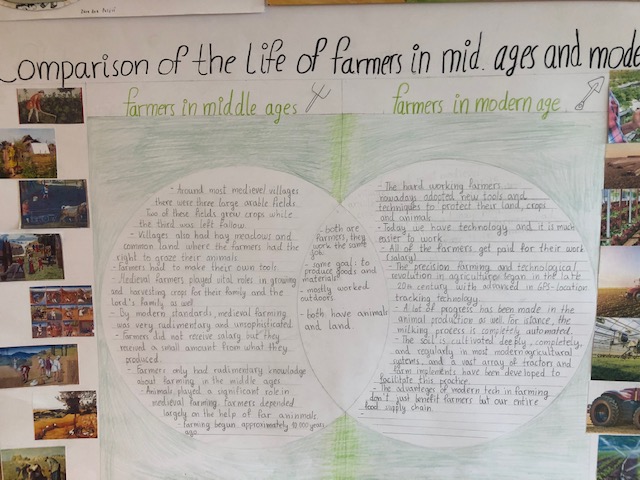 Comparison of the Life of farmers in mid. ages and mode
farmers in middle ages
farmers in modern age
- Around most medievel villages
there were three large arable fields.
Two of these fields grew crops while
the third was left fallow.
- Villages also had hay meadows and
common land where the farmers had the
right to graze their animals
- Farmers had to make their own tools
- Medieval farmers played vital roles in growing
and harvesting crops for their family and the
lord's family as well
- By modern standards, medieval farming
was very rudimentary and unsophisticated.
- Farmers did not receive salary but they
received a small amount from what they
produced.
- Farmers only had rudimentary knowledge
about farming in the middle ages.
- Animals played a significant role in
medieval farming. Farmers depended
largely on the help of far animals.
farming begun approximately 12 000 years
ago
- both are
farmers, they
work the same
job.
- same goal: to
produce goods and
materials
- mostly worked
outdoors
- both have animals
and land.
- The hard working farmers
nowadays adopted new tools and
techniques to protect their land, crops
and animals
- Today we have technology and it is much
easier to work
- All of the farmers get paid for their work
(salary)
- The precision farming and technological
revolution in agriculture began in the late
20th century with advanced in GPS-location
tracking technology.
- A lot of progress has been made in the
animal production as well. For istance, the
milking process is completely automated.
- The soil is cultivated deeply, completely,
and regularly in most modern agricultural
systems, and a vast array of tractors and
farm implements have been developed to
facilitate this practice.
- The advantages of modern tech in farming
don't just benefit farmers but our entire
food supply chain.